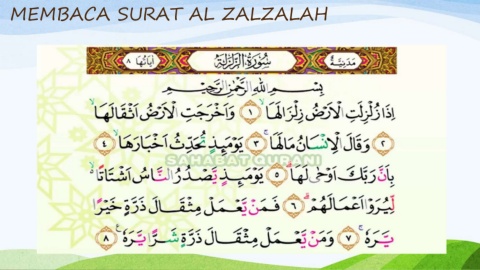 MEMBACA SURAT AL ZALZALAH
مدنية سورة الزلزلة آياتها ٨
بِسْمِ اللّٰهِ الرَّحْمٰنِ الرَّحِيْمِ
اِذَا زُلْزِلَتِ الْاَرْضُ زِلْزَالَهَاۙ ۝١ وَاَخْرَجَتِ الْاَرْضُ اَثْقَالَهَاۙ
۝٢ وَقَالَ الْاِنْسَانُ مَا لَهَاۚ ۝٣ يَوْمَىِٕذٍ تُحَدِّثُ اَخْبَارَهَاۙ ۝٤
SAHABAT QURANI
بِاَنَّ رَبَّكَ اَوْحٰى لَهَاۗ ۝٥ يَوْمَىِٕذٍ يَّصْدُرُ النَّاسُ اَشْتَاتًا ەۙ
لِّيُرَوْا اَعْمَالَهُمْۗ ۝٦ فَمَنْ يَّعْمَلْ مِثْقَالَ ذَرَّةٍ خَيْرًا
يَّرَهٗۚ ۝٧ وَمَنْ يَّعْمَلْ مِثْقَالَ ذَرَّةٍ شَرًّا يَّرَهٗ ۝٨